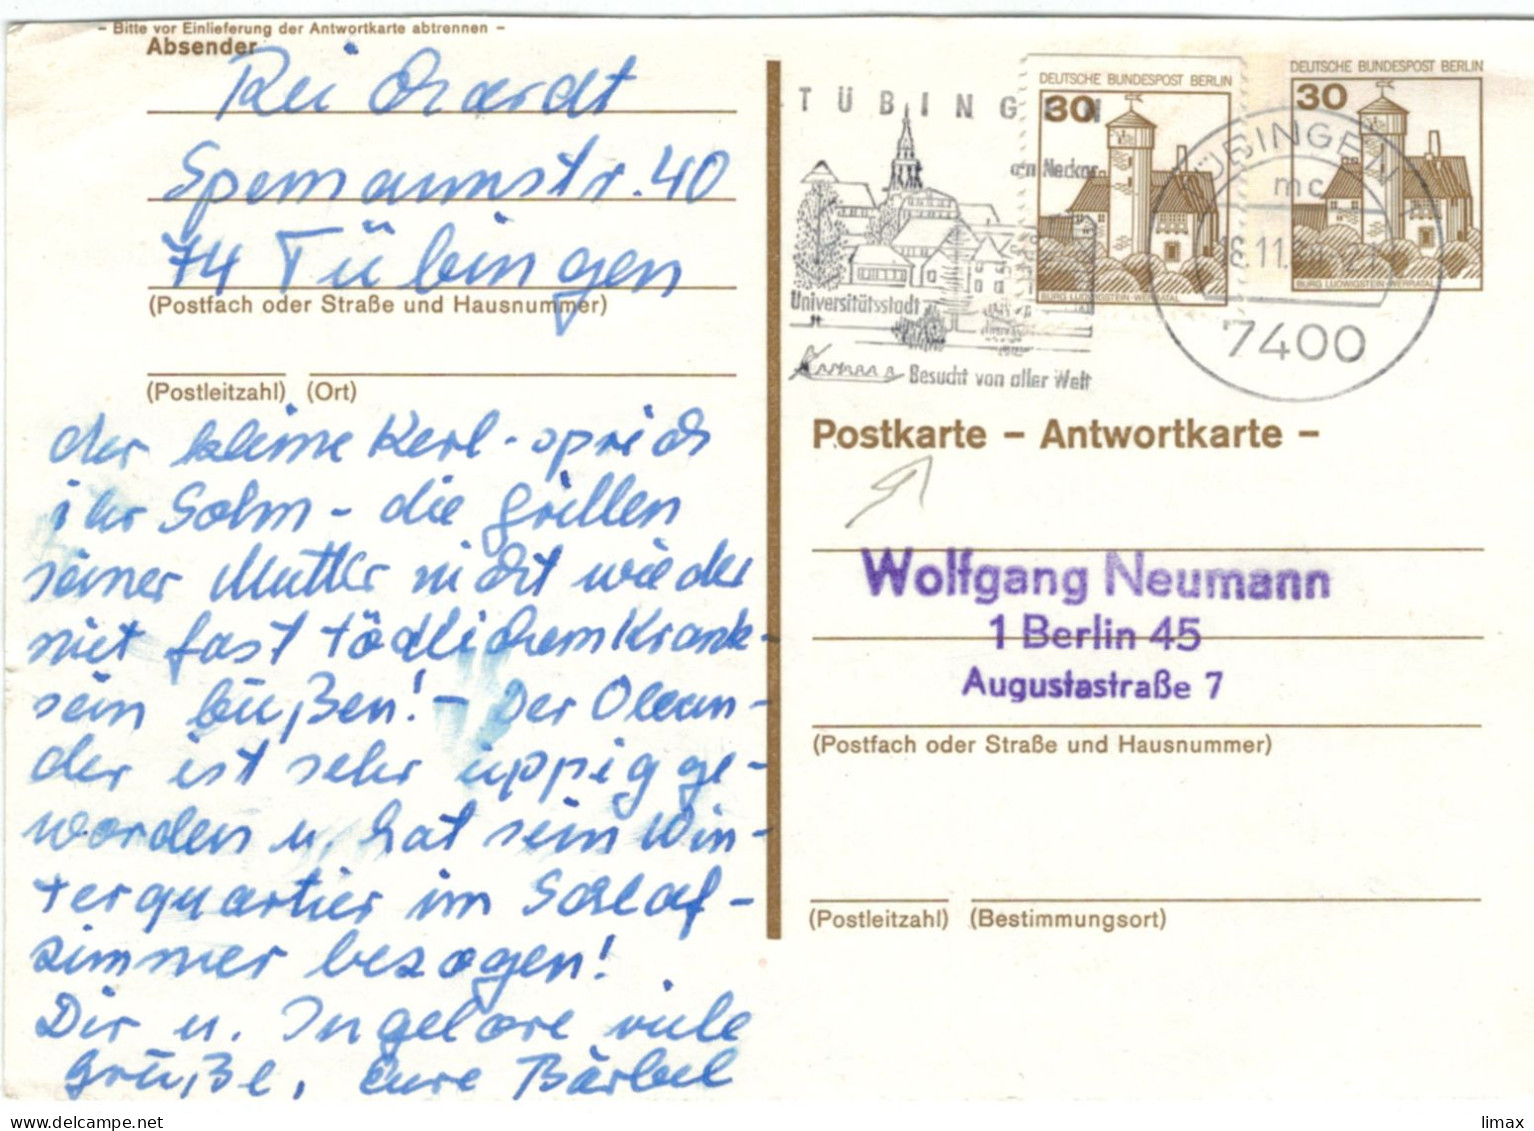 - Bitte vor Einlieferung der Antwortkarte abtrennen -
Absender
Reichardt
Spemannstr. 40
74 Tübingen
(Postfach oder Straße und Hausnummer)
(Postleitzahl) (Ort)
der kleine Kerl - sprich
ihr Sohn - die Grillen
seiner Mutter nicht wieder
mit fast tödlichem Krank-
sein büßen! - Der Olean-
der ist sehr üppig ge-
worden u. hat sein Win-
terquartier im Schlaf-
zimmer bezogen!
Dir u. Ingelore viele
Grüße, Eure Bärbel
TÜBINGEN
am Neckar
Universitätsstadt
Besucht von aller Welt
DEUTSCHE BUNDESPOST BERLIN
30
BURG LUDWIGSTEIN-WERRATAL
DEUTSCHE BUNDESPOST BERLIN
30
BURG LUDWIGSTEIN-WERRATAL
TÜBINGEN
mc
18.11.
7400
Postkarte - Antwortkarte -
Wolfgang Neumann
1 Berlin 45
Augustastraße 7
(Postfach oder Straße und Hausnummer)
(Postleitzahl) (Bestimmungsort)
delcampe.net
limax